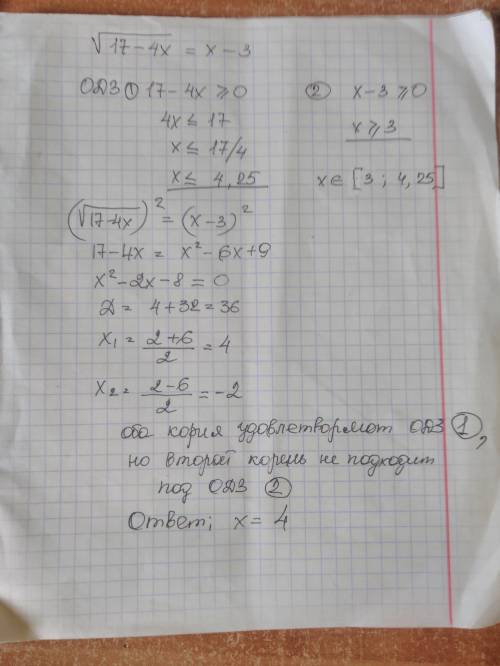 √17-4x = x-3
ОДЗ ① 17-4x ⩾ 0
② x-3 ⩾ 0
4x ≤ 17
x ⩾ 3
x ≤ 17/4
x ≤ 4,25
x ∈ [3 ; 4,25]
(√17-4x)² = (x-3)²
17-4x = x²-6x+9
x²-2x-8=0
D = 4+32=36
x₁ = (2+6)/2 = 4
x₂ = (2-6)/2 = -2
оба корня удовлетворяют ОДЗ ①,
но второй корень не подходит
под ОДЗ ②
Ответ; x = 4